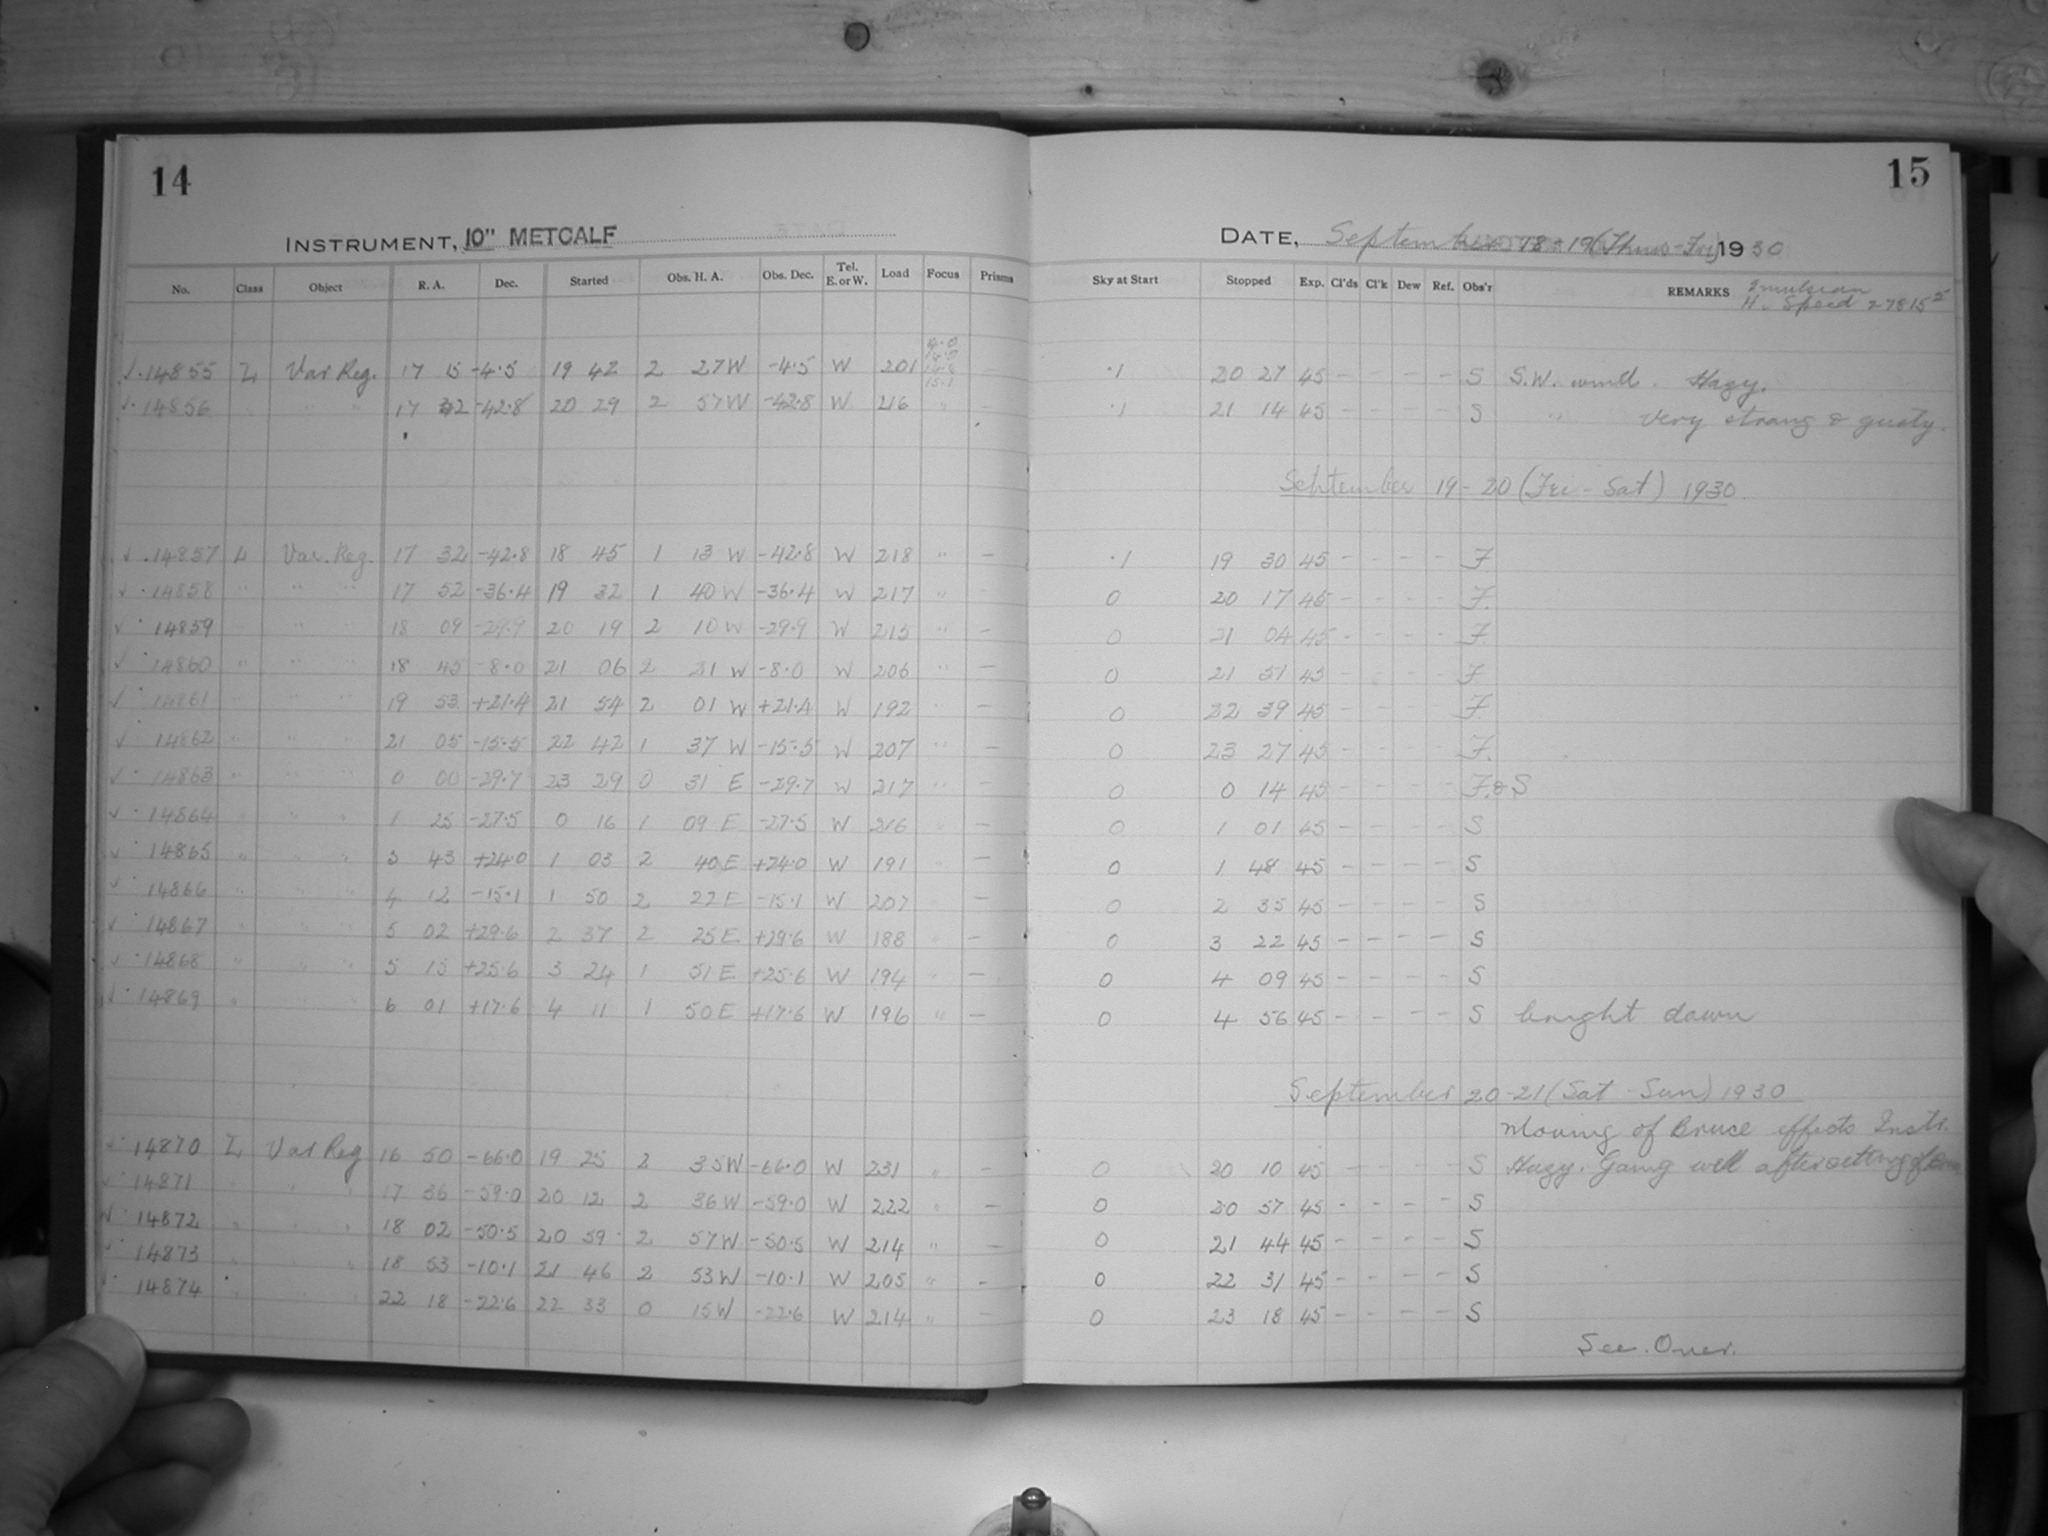 14
INSTRUMENT, 10" METCALF
No. Class Object R. A. Dec. Started Obs. H. A. Obs. Dec. Tel. E. or W. Load Focus Prisms
14855 L Var Reg. 17 15 -4.5 19 42 2 27 W -4.5 W 201
14856 " " 17 32 -42.8 20 29 2 57 W -42.8 W 216 "
14857 L Var. Reg. 17 32 -42.8 18 45 1 13 W -42.8 W 218 " -
14858 " " " 17 52 -36.4 19 32 1 40 W -36.4 W 217 " -
14859 " " 18 09 -29.9 20 19 2 10 W -29.9 W 215 " -
14860 " " " 18 45 -8.0 21 06 2 21 W -8.0 W 206 " -
14861 " " " 19 53 +21.4 21 54 2 01 W +21.4 W 192 " -
14862 " " " 21 05 -15.5 22 42 1 37 W -15.5 W 207 " -
14863 " " " 0 00 -29.7 23 29 0 31 E -29.7 W 217 " -
14864 " " " 1 25 -27.5 0 16 1 09 E -27.5 W 216 " -
14865 " " " 3 43 +24.0 1 03 2 40 E +24.0 W 191 " -
14866 " " " 4 12 -15.1 1 50 2 22 E -15.1 W 207 -
14867 " " " 5 02 +29.6 2 37 2 25 E +29.6 W 188 " -
14868 " " " 5 15 +25.6 3 24 1 51 E +25.6 W 194 " -
14869 " " " 6 01 +17.6 4 11 1 50 E +17.6 W 196 " -
14870 L Var Reg 16 50 -66.0 19 25 2 35 W -66.0 W 231 " -
14871 " " " 17 36 -59.0 20 12 2 36 W -59.0 W 222 " -
14872 " " " 18 02 -50.5 20 59 2 57 W -50.5 W 214 " -
14873 " " " 18 53 -10.1 21 46 2 53 W -10.1 W 205 " -
14874 " " " 22 18 -22.6 22 33 0 15 W -22.6 W 214 " -
15
DATE, September 18-19 (Thurs-Fri) 1930
Sky at Start Stopped Exp. Cl'ds Cl'k Dew Ref. Obs'r REMARKS Emulsion
H. Speed 27815
.1 20 27 45 - - - - S S.W. wind. Hazy.
.1 21 14 45 - - - - S " very strong & gusty.
September 19-20 (Fri-Sat) 1930
.1 19 30 45 - - - - F
0 20 17 45 - - - - F.
0 21 04 45 - - - - F.
0 21 51 45 - - - - F
0 22 39 45 - - - - F.
0 23 27 45 - - - - F.
0 0 14 45 - - - - F.&S
0 1 01 45 - - - - S
0 1 48 45 - - - - S
0 2 35 45 - - - - S
0 3 22 45 - - - - S
0 4 09 45 - - - - S
0 4 56 45 - - - - S bright dawn
September 20-21 (Sat-Sun) 1930
Moving of Bruce effects Instr.
0 20 10 45 - - - - S Hazy. Going well after setting of
0 20 57 45 - - - - S
0 21 44 45 - - - - S
0 22 31 45 - - - - S
0 23 18 45 - - - - S
See. Over.